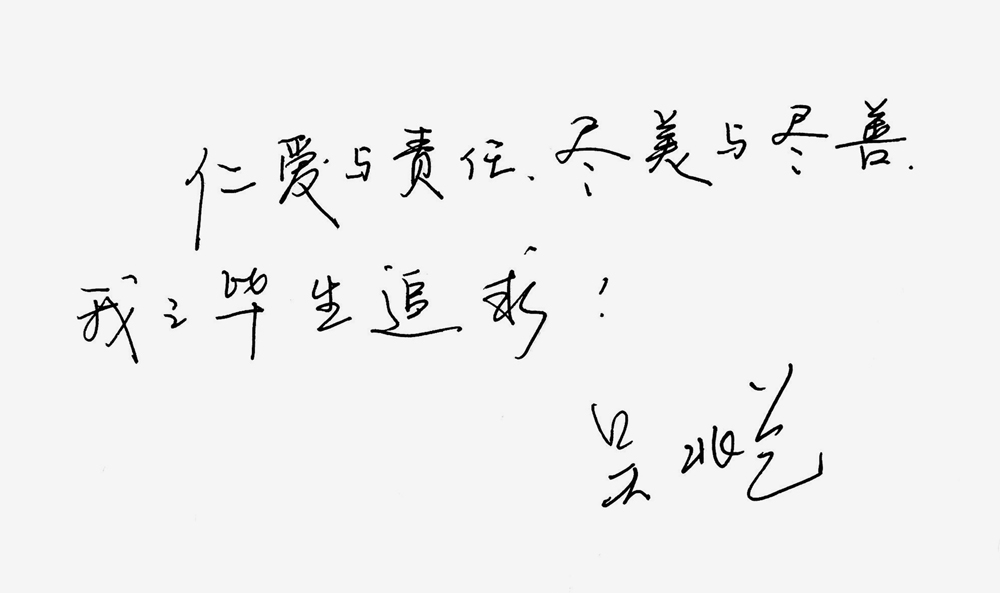 仁爱与责任、尽美与尽善.
我之毕生追求!
吴